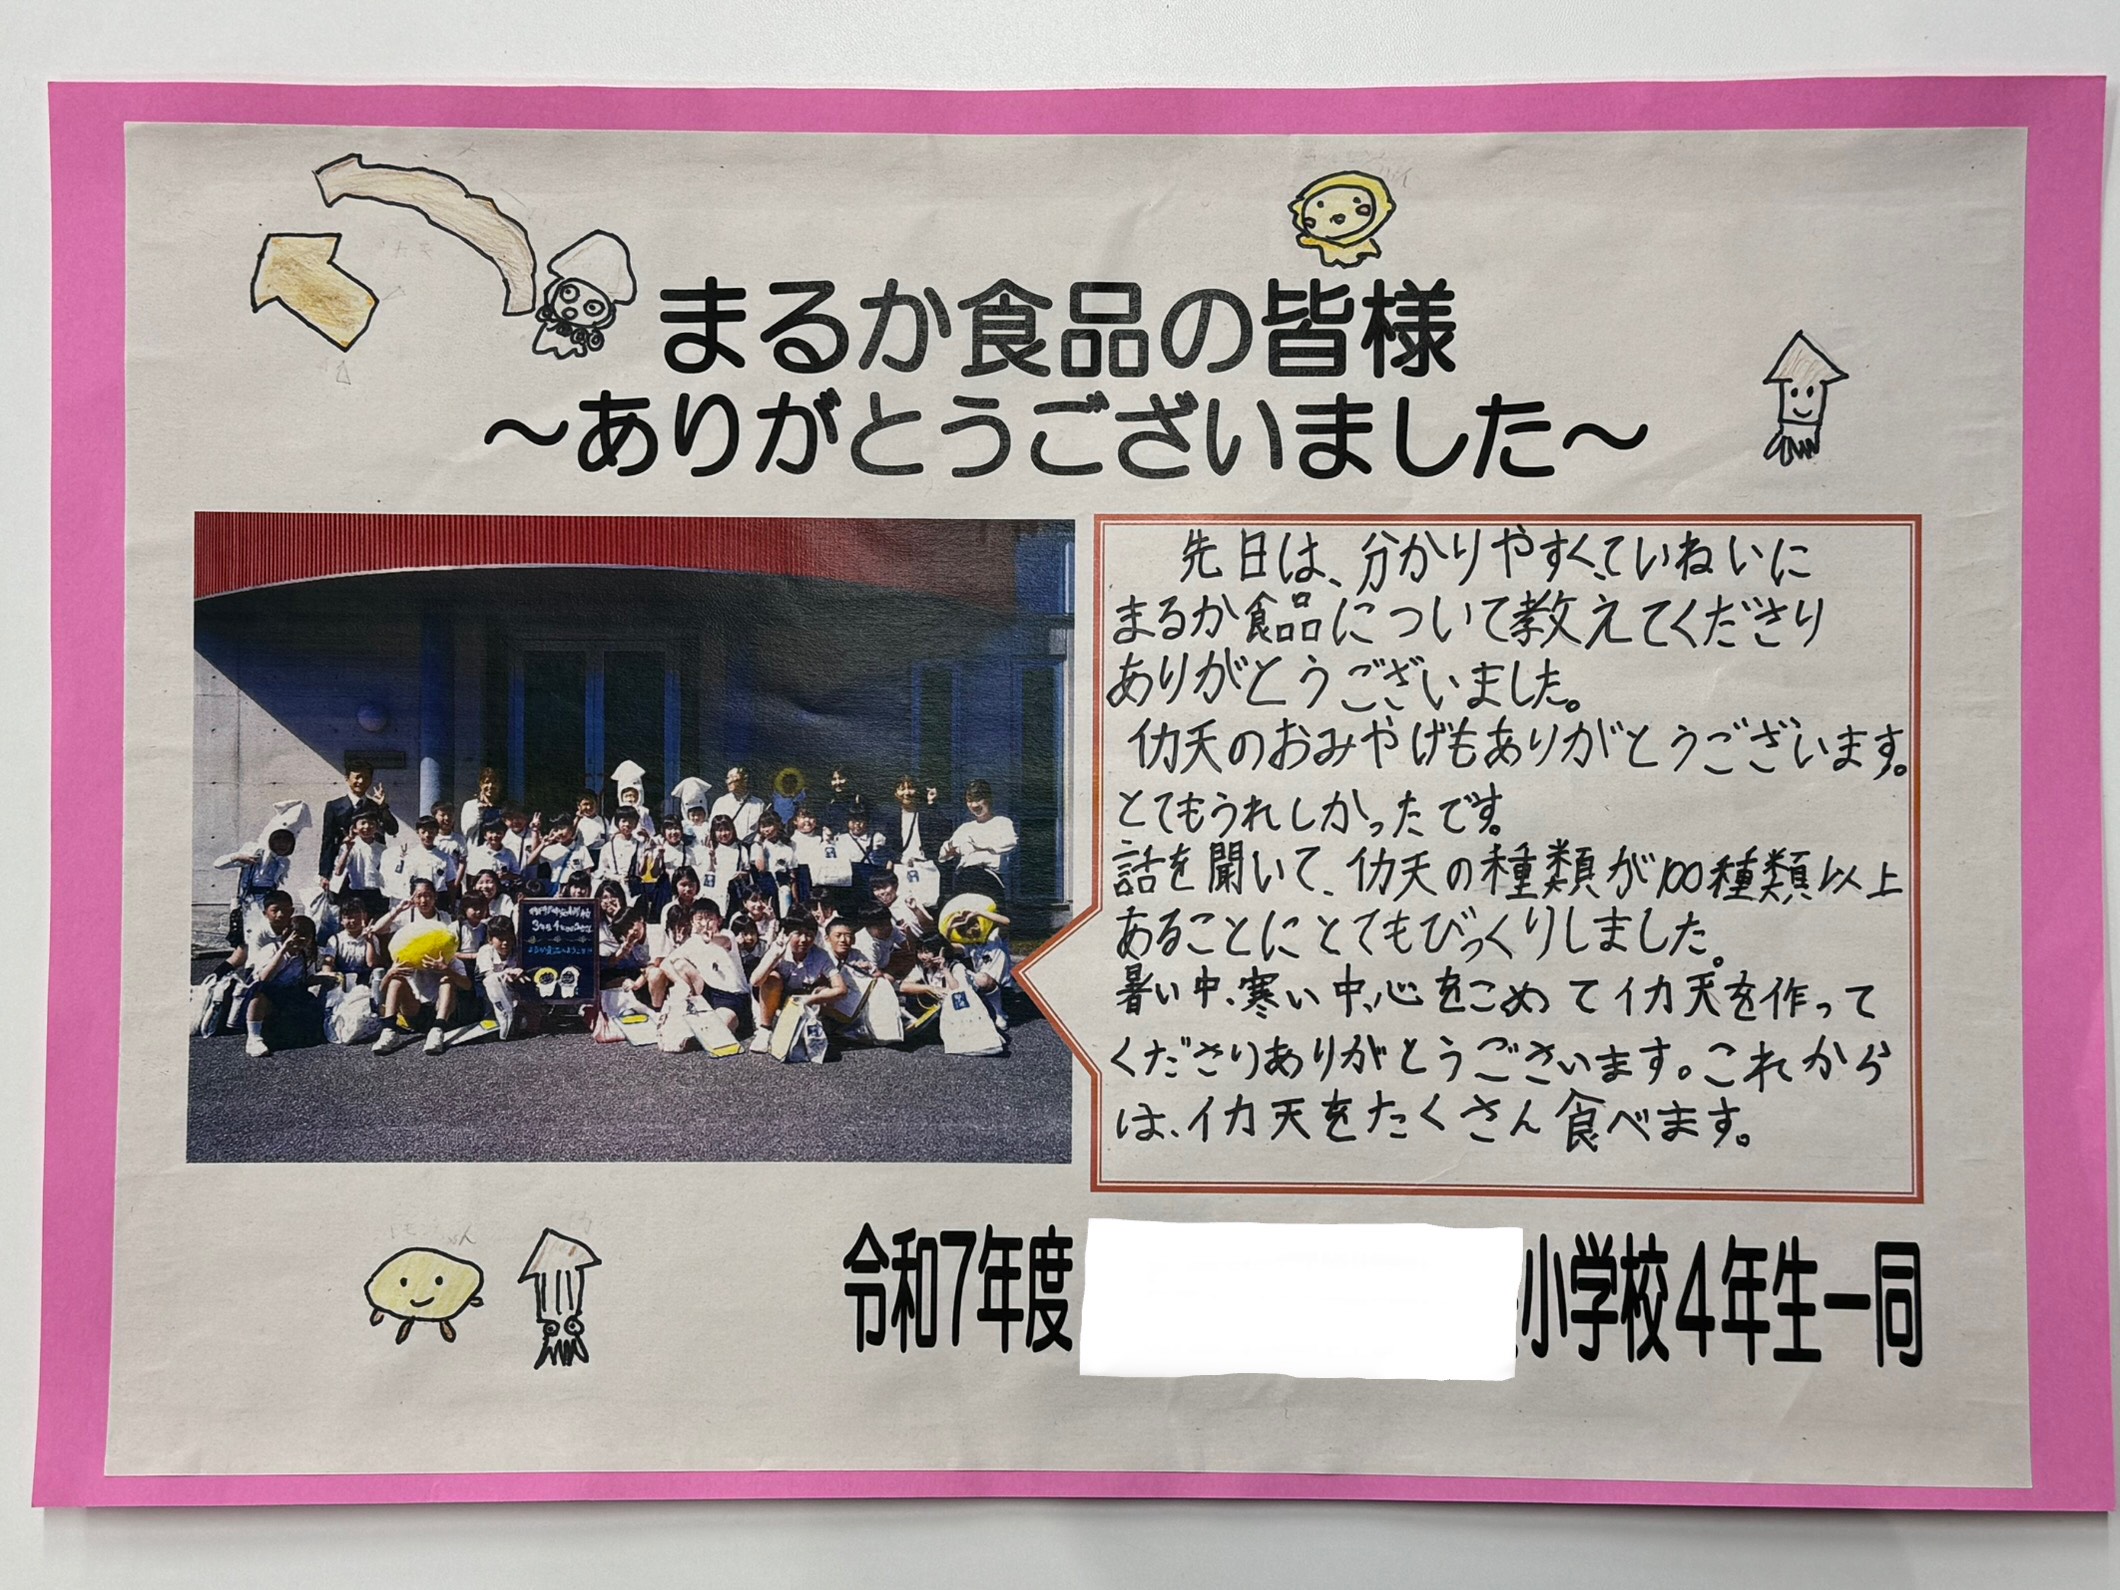 まるか食品の皆様
～ありがとうございました～
先日は、分かりやすく、ていねいに
まるか食品について教えてくださり
ありがとうございました。
イカ天のおみやげもありがとうございます。
とてもうれしかったです。
話を聞いて、イカ天の種類が100種類以上
あることにとてもびっくりしました。
暑い中、寒い中、心をこめてイカ天を作って
くださりありがとうございます。これから
は、イカ天をたくさん食べます。
まるか食品へようこそ
令和7年度
小学校4年生一同